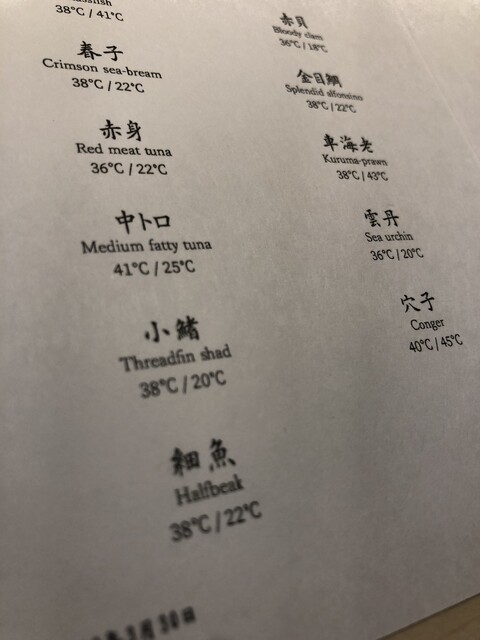 38°C / 41°C
春子
Crimson sea-bream
38°C / 22°C
赤身
Red meat tuna
36°C / 22°C
中トロ
Medium fatty tuna
41°C / 25°C
小鰭
Threadfin shad
38°C / 20°C
細魚
Halfbeak
38°C / 22°C
3月30日
赤貝
Bloody clam
36°C / 18°C
金目鯛
Splendid alfonsino
38°C / 22°C
車海老
Kuruma-prawn
38°C / 43°C
雲丹
Sea urchin
36°C / 20°C
穴子
Conger
40°C / 45°C